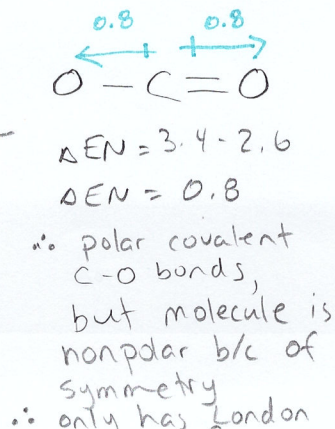 0.8 0.8
O — C = O
ΔEN = 3.4 - 2.6
ΔEN = 0.8
∴ polar covalent
C-O bonds,
but molecule is
nonpolar b/c of
symmetry
∴ only has London